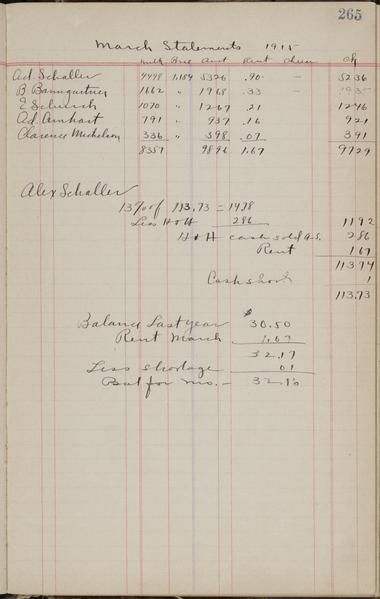 265
March Statements 1915
milk Price Amt Rent Cheese Ck
Ad. Schaller 4498 1.184 5326 .90 - 5236
B. Baumgartner 1662 " 1968 .33 - 1935
E Schursch 1070 " 1267 .21 1246
Ad. Amhart 791 " 937 .16 921
Clarence Mickelson 336 " 398 .07 391
8357 9896 1.67 9729
Alex Schaller
13% of 113.73 = 1478
Less H&H 286 1192
H&H cash sold A.S. 286
Rent 167
11374
Cash short 1
113.73
Balance Last year $30.50
Rent March 1.67
32.17
Less shortage 01
Bal for mo. - 32.16